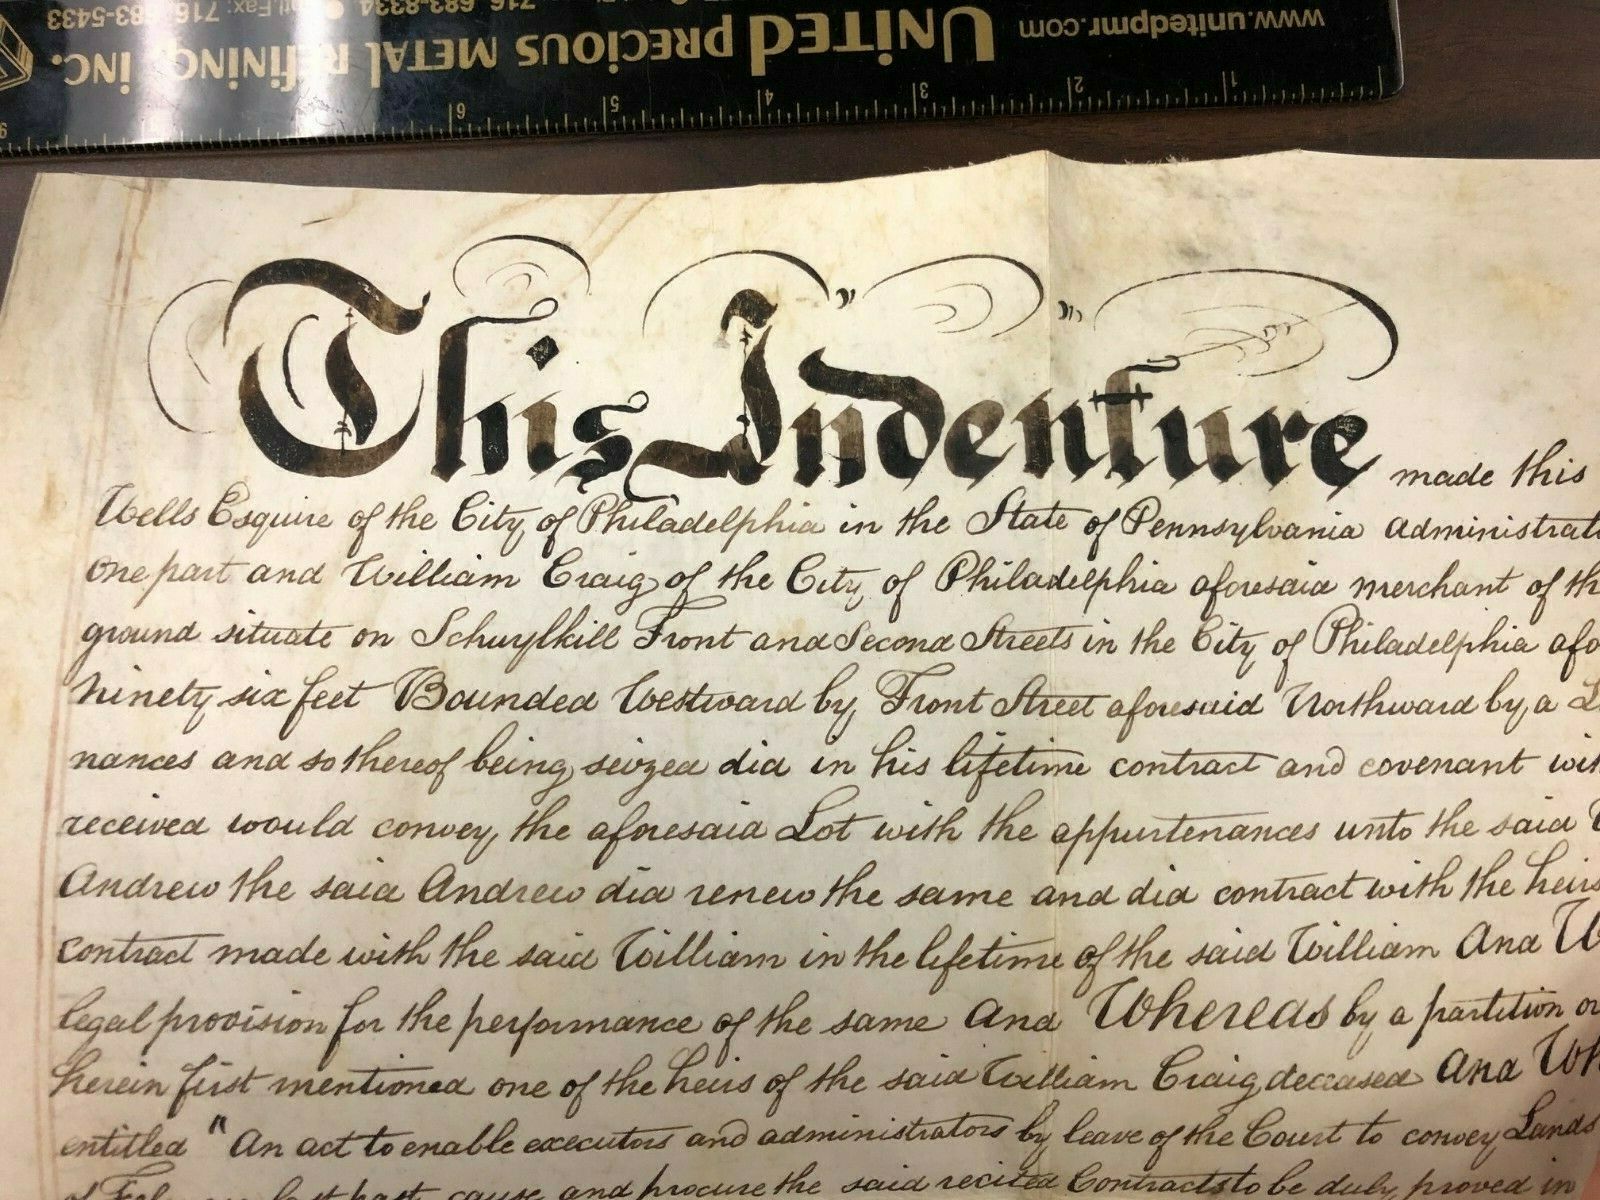 www.unitedpmr.com UNITED PRECIOUS METAL REFINING, INC. 716-683-8334 Fax: 716-683-5433
1 2 3 4 5 6
This Indenture made this
Wells Esquire of the City of Philadelphia in the State of Pennsylvania administrat
one part and William Craig of the City of Philadelphia aforesaid merchant of th
ground situate on Schuylkill Front and Second Streets in the City of Philadelphia afo
ninety six feet Bounded Westward by Front Street aforesaid Northward by a L
nances and so thereof being seized did in his lifetime contract and covenant wit
received would convey the aforesaid Lot with the appurtenances unto the said
Andrew the said Andrew did renew the same and did contract with the heirs
contract made with the said William in the lifetime of the said William And W
legal provision for the performance of the same And Whereas by a partition or
herein first mentioned one of the heirs of the said William Craig deceased And Wh
entitled "An act to enable executors and administrators by leave of the Court to convey Lands
last past cause and procure the said recited Contracts to be duly proved in